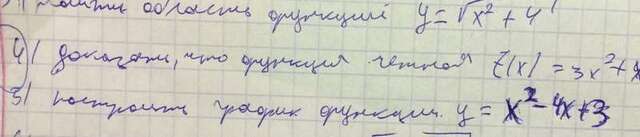 найти область функций y = √x² + 4
4) доказать, что функция четной f(x) = 3x² +
5) построить график функции. y = x² - 4x + 3